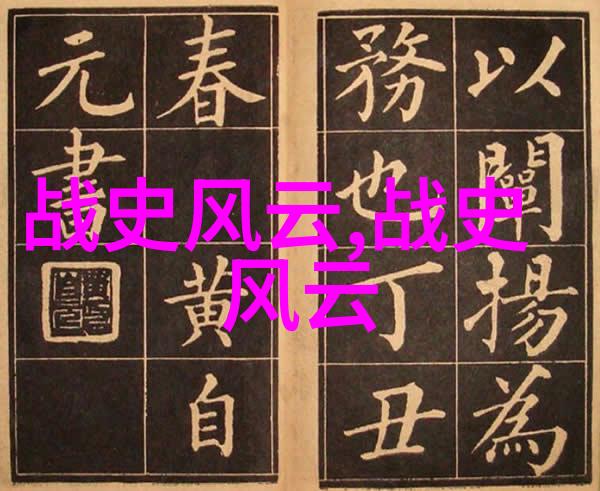 以闡揚為
務也丁丑
春黄自
元書
战史风云,战史
风云